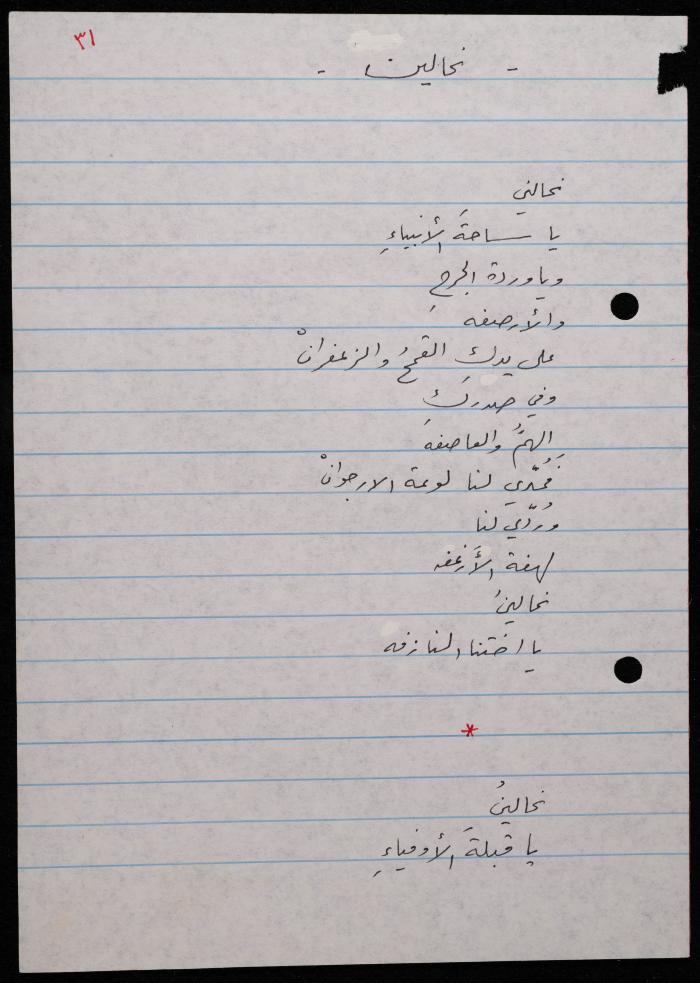 ٣١
- نحالين -
نحالين
يا ساحةَ الأنبياءِ
ويا وردة الجرحِ
والأرصفه
على يدك القمحُ والزعفرانْ
وفي صدركَ
الهمُّ والعاصفه
فمُدّي لنا لوعة الارجوانْ
ورُدّي لنا
لهفة الأَرغفه
نحالينُ
يا اختنا النازفه
*
نحالينُ
يا قبلةَ الأوفياءِ